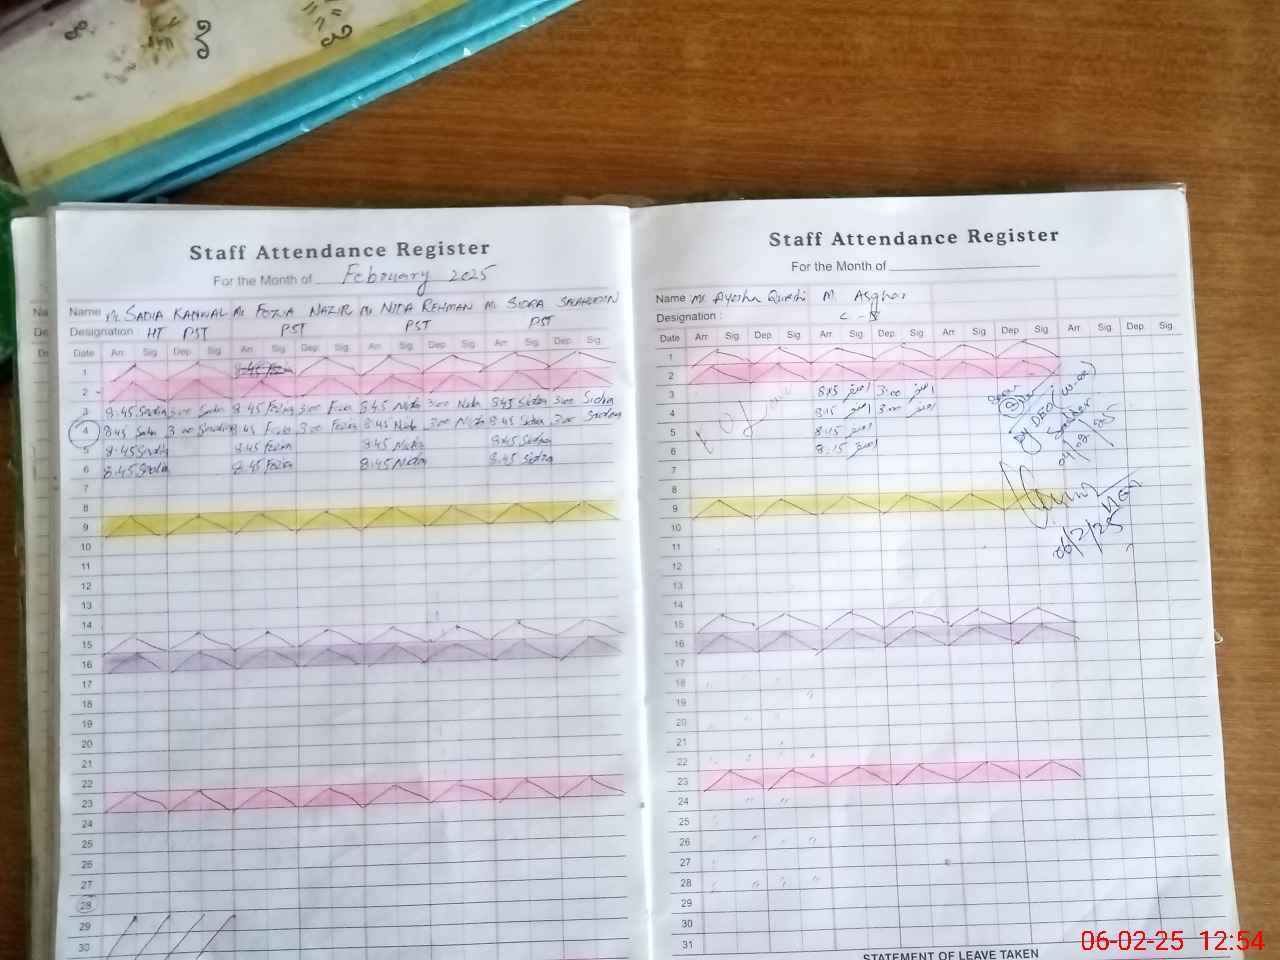 Staff Attendance Register
For the Month of February 2025
Name Ms SADIA KANWAL Ms FOZIA NAZIR Ms NIDA REHMAN Ms SIDRA SALAHUDDIN
Designation HT PST PST PST PST
Date Arr. Sig. Dep. Sig. Arr. Sig. Dep. Sig. Arr. Sig. Dep. Sig. Arr. Sig. Dep. Sig.
1 8:45 Fozia
2
3 8:45 Sadia 3:00 Sadia 8:45 Fozia 3:00 Fozia 8:45 Nida 3:00 Nida 8:45 Sidra 3:00 Sidra
4 8:45 Sadia 3:00 Sadia 8:45 Fozia 3:00 Fozia 8:45 Nida 3:00 Nida 8:45 Sidra 3:00 Sidra
5 8:45 Sadia 8:45 Fozia 8:45 Nida 8:45 Sidra
6 8:45 Sadia 8:45 Fozia 8:45 Nida 8:45 Sidra
7
8
9
10
11
12
13
14
15
16
17
18
19
20
21
22
23
24
25
26
27
28
29
30
Staff Attendance Register
For the Month of
Name Ms Ayesha Qureshi M. Asghar
Designation : C - IV
Date Arr. Sig. Dep. Sig. Arr. Sig. Dep. Sig. Arr. Sig. Dep. Sig. Arr. Sig. Dep. Sig.
1
2
3 8:15 اصغر 3:00 اصغر
4 8:15 اصغر 3:00 اصغر
5 8:15 اصغر
6 8:15 اصغر
7
8
9
10
11
12
13
14
15
16
17
18
19
20
21
22
23
24
25
26
27
28
29
30
31
Dy DEO (W-EE)
04/02/25
06/2/25
STATEMENT OF LEAVE TAKEN
06-02-25 12:54